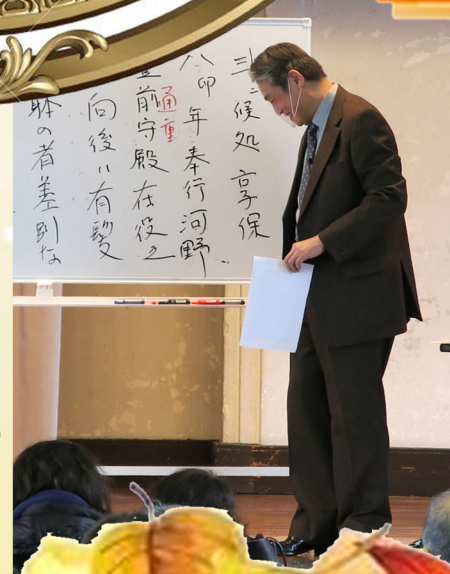 ニ候処享保
八卯年奉行河野
豊前守殿在役之
通重
向後ハ有髪
躰の者差別な